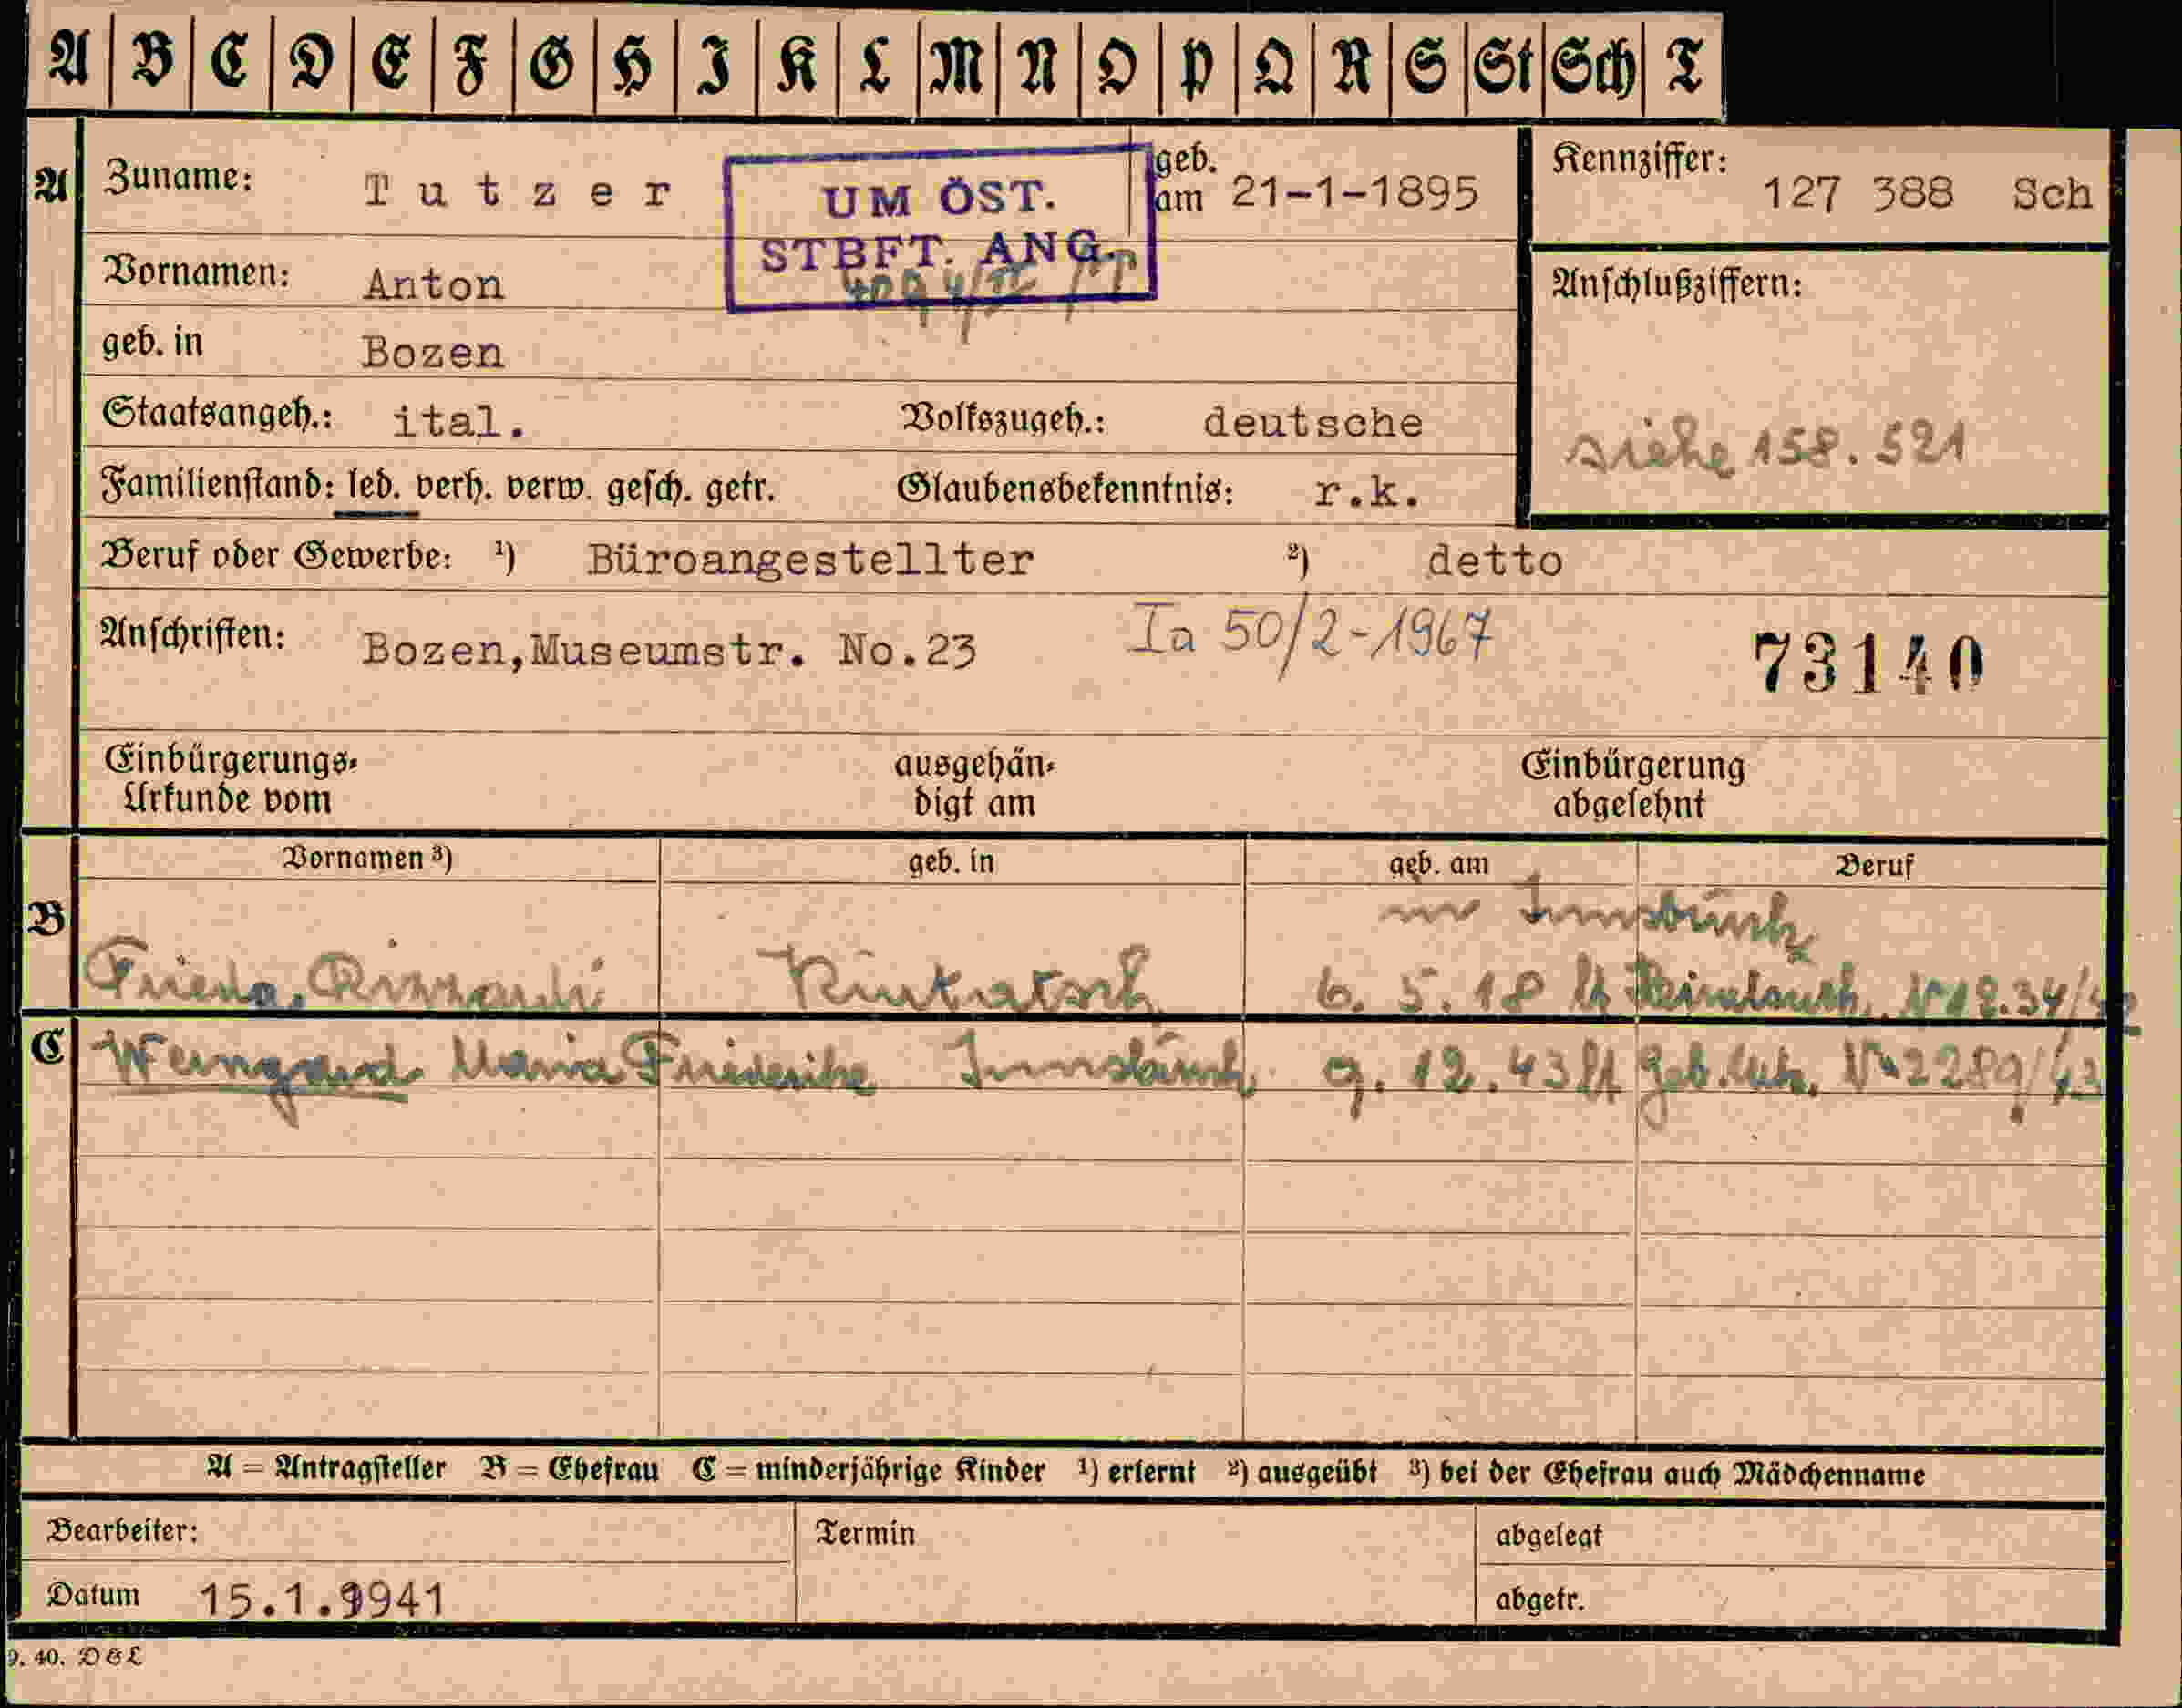 A B C D E F G H I K L M N O P Q R S St Sch T
A
Zuname: Tutzer
UM ÖST.
STBFT. ANG.
geb. am 21-1-1895
Kennziffer: 127 388 Sch
Vornamen: Anton
Anschlußziffern:
geb. in Bozen
Staatsangeh.: ital. Volkszugeh.: deutsche
siehe 158.521
Familienstand: led. verh. verw. gesch. getr. Glaubensbekenntnis: r.k.
Beruf oder Gewerbe: ¹) Büroangestellter ²) detto
Anschriften: Bozen,Museumstr. No.23 Ia 50/2-1967 73140
Einbürgerungs-
Urkunde vom
ausgehän-
digt am
Einbürgerung
abgelehnt
Vornamen ³) geb. in geb. am Beruf
B
Innsbruck
Frieda, 6. 5. 18 lt
C
Maria Friederike Innsbruck 9. 12. 43 lt Geb. Urk. No 2289/43
A = Antragsteller B = Ehefrau C = minderjährige Kinder ¹) erlernt ²) ausgeübt ³) bei der Ehefrau auch Mädchenname
Bearbeiter: Termin abgelegt
Datum 15.1.1941 abgetr.
9. 40. D & L